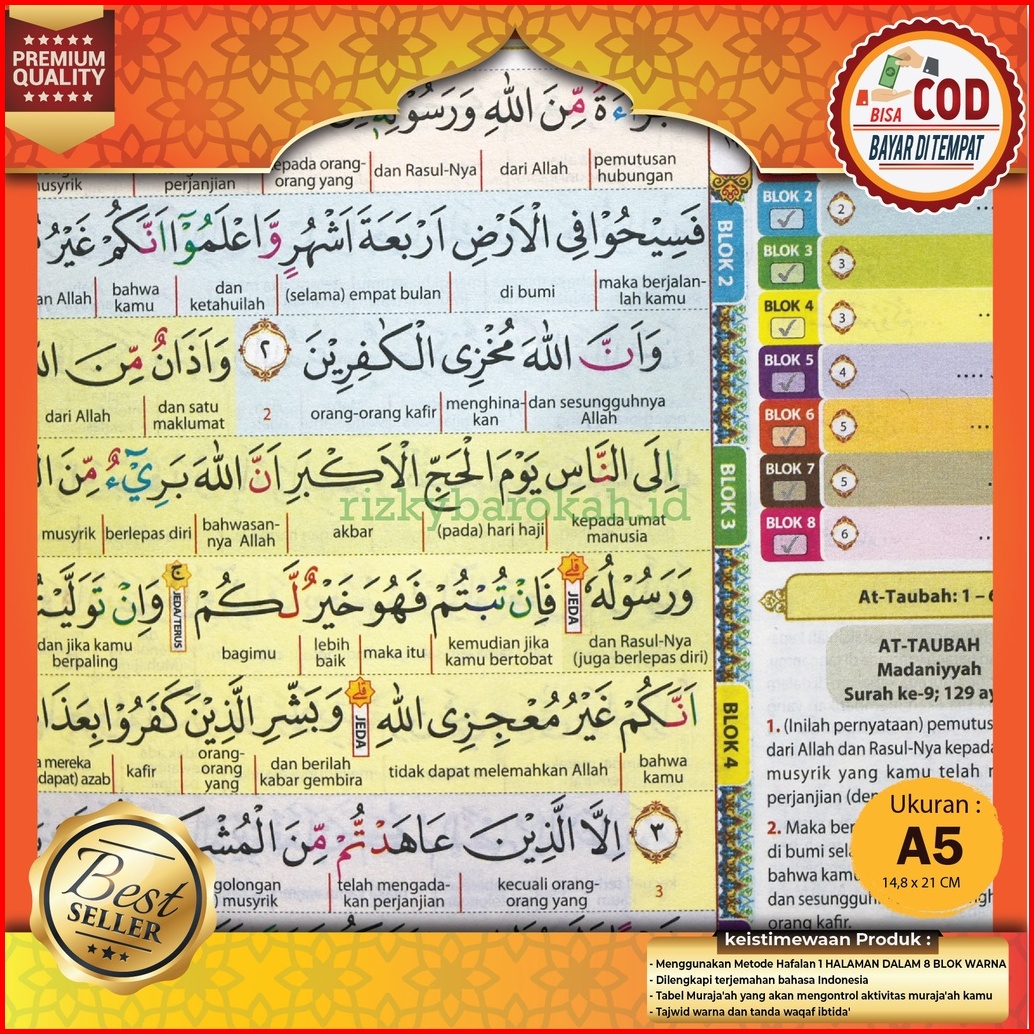 PREMIUM
QUALITY
BISA COD
BAYAR DI TEMPAT
مِّنَ اللّٰهِ وَرَسُوْلِهٖٓ
pemutusan hubungan | dari Allah | dan Rasul-Nya | kepada orang-orang yang | perjanjian | musyrik
فَسِيْحُوْا فِى الْاَرْضِ اَرْبَعَةَ اَشْهُرٍ وَّاعْلَمُوْٓا اَنَّكُمْ غَيْرُ
maka berjalan-lah kamu | di bumi | (selama) empat bulan | dan ketahuilah | bahwa kamu | an Allah
وَاَنَّ اللّٰهَ مُخْزِى الْكٰفِرِيْنَ ٢ وَاَذَانٌ مِّنَ
dan sesungguhnya Allah | menghina-kan | orang-orang kafir | 2 | dan satu maklumat | dari Allah
اِلَى النَّاسِ يَوْمَ الْحَجِّ الْاَكْبَرِ اَنَّ اللّٰهَ بَرِيْۤءٌ مِّنَ
rizkybarokah.id
kepada umat manusia | (pada) hari haji | akbar | bahwasan-nya Allah | berlepas diri | musyrik
وَرَسُوْلُهٗ ۗ فَاِنْ تُبْتُمْ فَهُوَ خَيْرٌ لَّكُمْ ۚ وَاِنْ تَوَلَّيْتُ
JEDA
JEDA/TERUS
dan Rasul-Nya (juga berlepas diri) | kemudian jika kamu bertobat | maka itu | lebih baik | bagimu | dan jika kamu berpaling
اَنَّكُمْ غَيْرُ مُعْجِزِى اللّٰهِ ۗ وَبَشِّرِ الَّذِيْنَ كَفَرُوْا بِعَذَا
JEDA
bahwa kamu | tidak dapat melemahkan Allah | dan berilah kabar gembira | orang-orang yang | kafir | a mereka dapat) azab
٣ اِلَّا الَّذِيْنَ عَاهَدْتُّمْ مِّنَ الْمُشْ
3 | kecuali orang-orang yang | telah mengada-kan perjanjian | golongan ) musyrik
BLOK 2
BLOK 3
BLOK 4
BLOK 2 2
BLOK 3 3
BLOK 4 3
BLOK 5 4
BLOK 6 5
BLOK 7 5
BLOK 8 6
At-Taubah: 1 – 6
AT-TAUBAH
Madaniyyah
Surah ke-9; 129 ay
1. (Inilah pernyataan) pemutus
dari Allah dan Rasul-Nya kepada
musyrik yang kamu telah
perjanjian (den
2. Maka ber
di bumi sela
bahwa kamu
dan sesungguh
orang kafir.
Ukuran :
A5
14,8 x 21 CM
Best
SELLER
keistimewaan Produk :
- Menggunakan Metode Hafalan 1 HALAMAN DALAM 8 BLOK WARNA
- Dilengkapi terjemahan bahasa Indonesia
- Tabel Muraja'ah yang akan mengontrol aktivitas muraja'ah kamu
- Tajwid warna dan tanda waqaf ibtida'